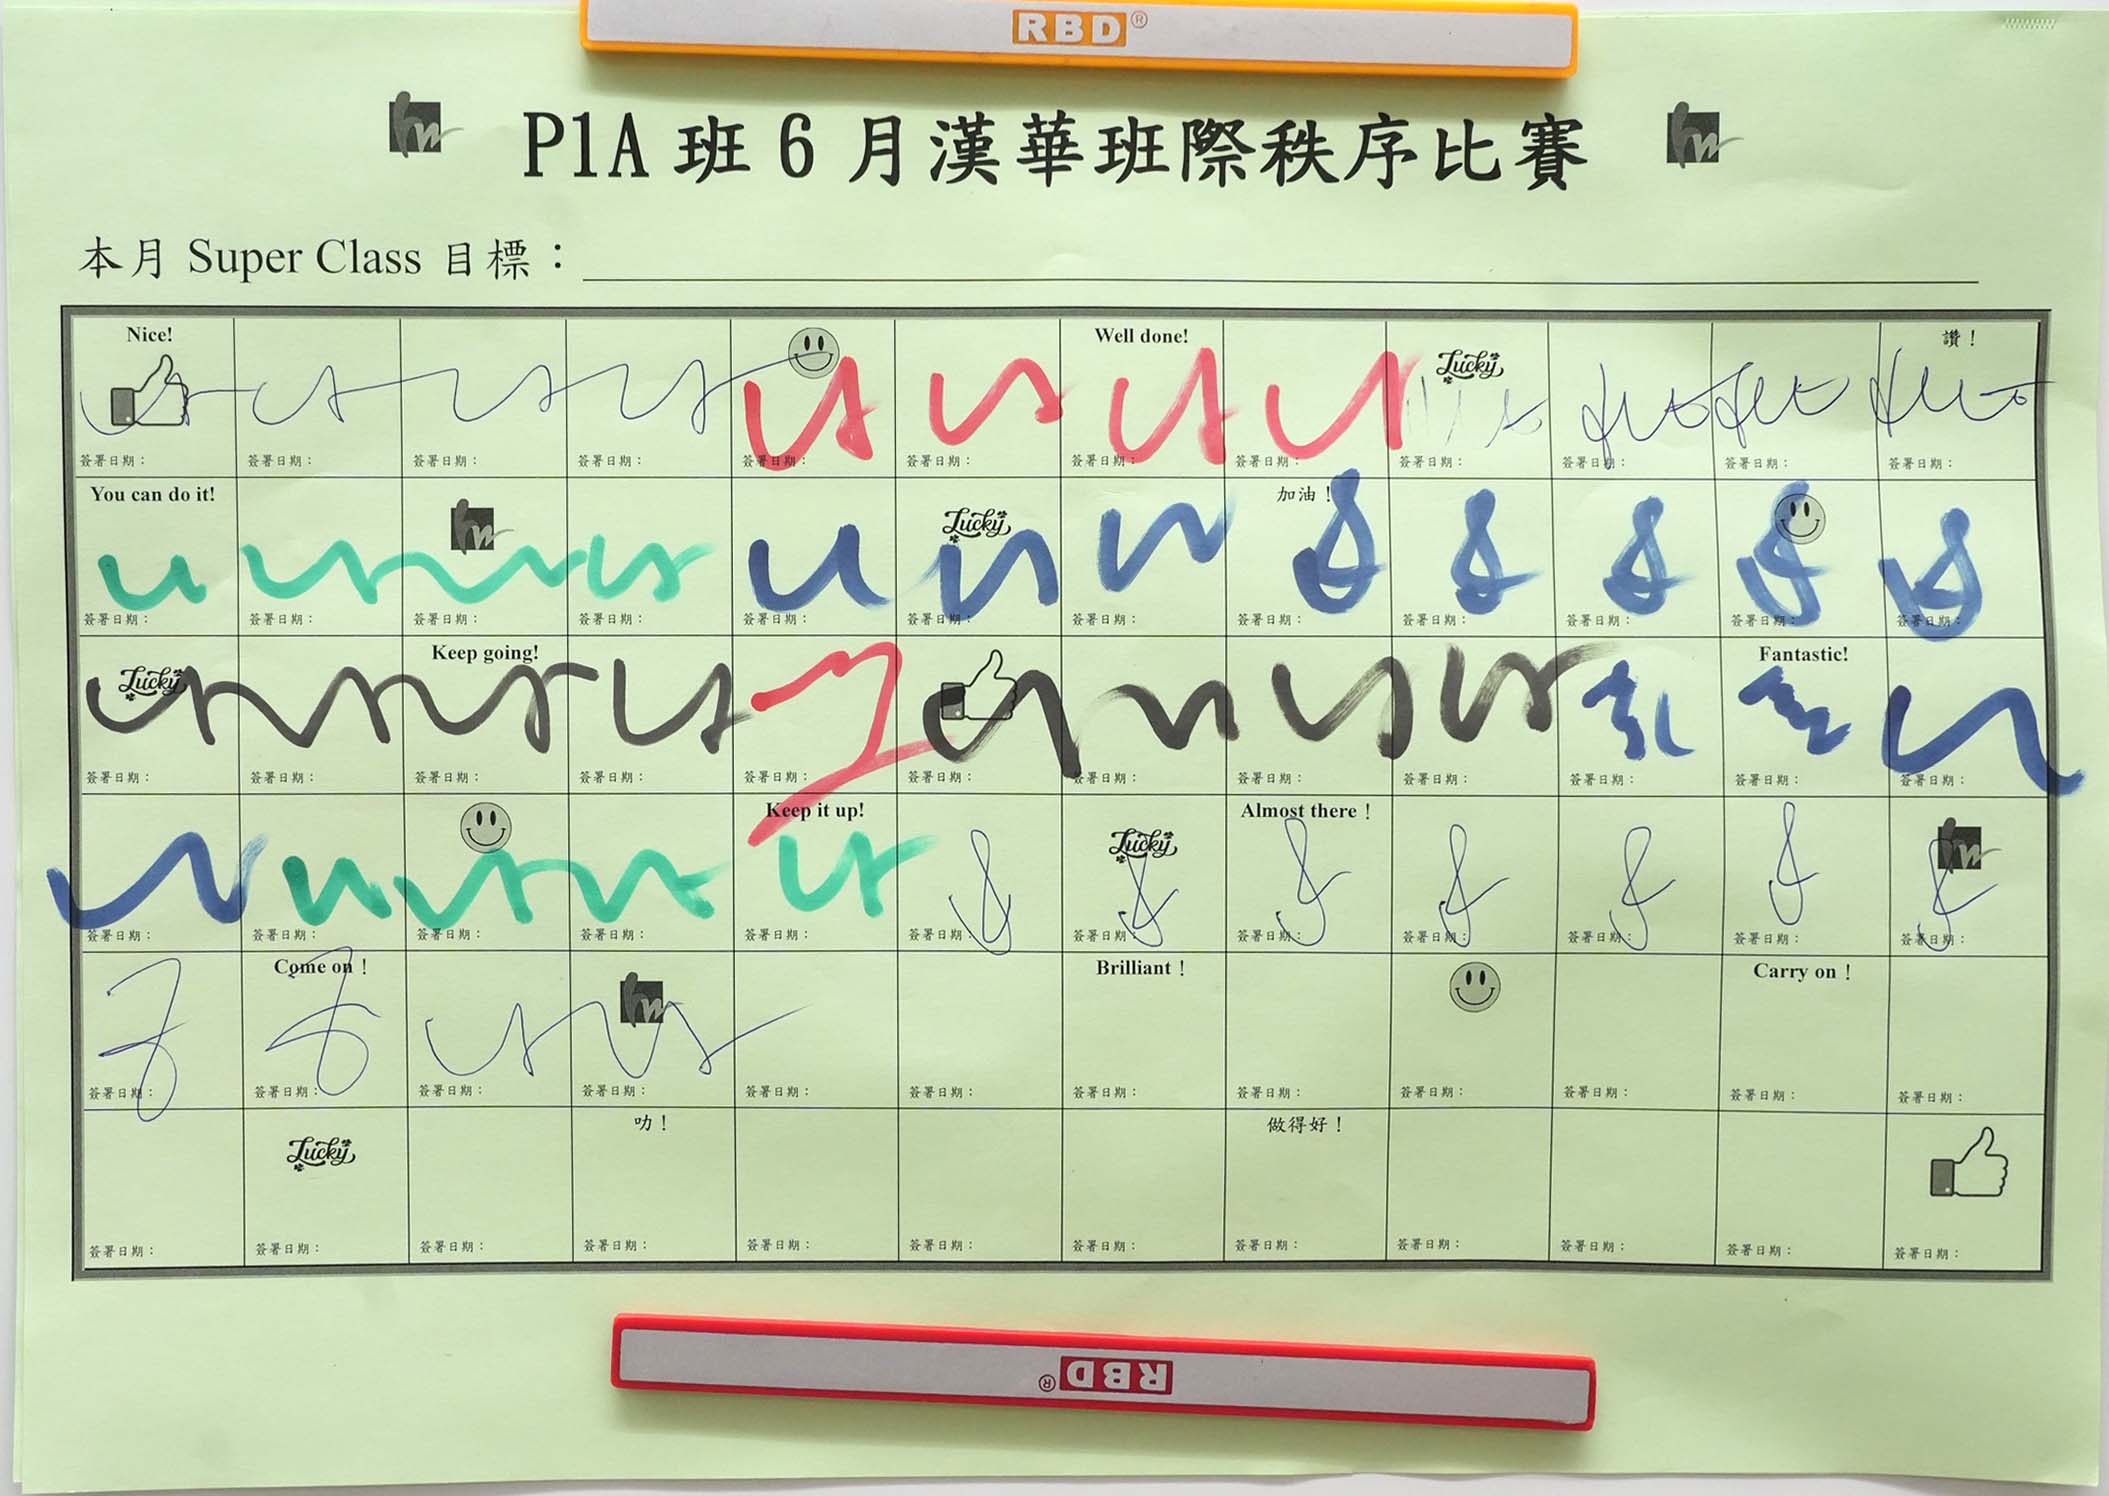 RBD®
P1A 班 6 月漢華班際秩序比賽
本月 Super Class 目標：
Nice! Well done! Lucky 讚！
簽署日期： 簽署日期： 簽署日期： 簽署日期： 簽署日期： 簽署日期： 簽署日期： 簽署日期： 簽署日期： 簽署日期： 簽署日期： 簽署日期：
You can do it! Lucky 加油！
簽署日期： 簽署日期： 簽署日期： 簽署日期： 簽署日期： 簽署日期： 簽署日期： 簽署日期： 簽署日期： 簽署日期： 簽署日期： 簽署日期：
Lucky Keep going! Fantastic!
簽署日期： 簽署日期： 簽署日期： 簽署日期： 簽署日期： 簽署日期： 簽署日期： 簽署日期： 簽署日期： 簽署日期： 簽署日期： 簽署日期：
Keep it up! Lucky Almost there！
簽署日期： 簽署日期： 簽署日期： 簽署日期： 簽署日期： 簽署日期： 簽署日期： 簽署日期： 簽署日期： 簽署日期： 簽署日期： 簽署日期：
Come on！ Brilliant！ Carry on！
簽署日期： 簽署日期： 簽署日期： 簽署日期： 簽署日期： 簽署日期： 簽署日期： 簽署日期： 簽署日期： 簽署日期： 簽署日期： 簽署日期：
Lucky 叻！ 做得好！
簽署日期： 簽署日期： 簽署日期： 簽署日期： 簽署日期： 簽署日期： 簽署日期： 簽署日期： 簽署日期： 簽署日期： 簽署日期： 簽署日期：
RBD®